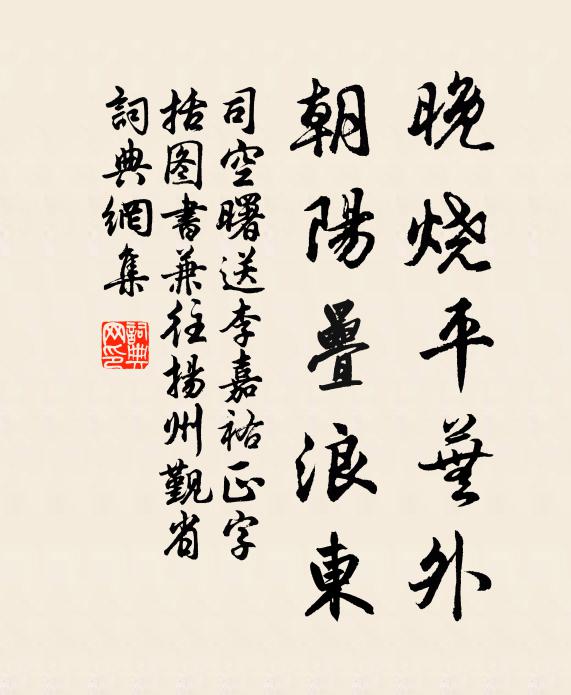 晚烧平蕪外
朝陽疊浪東
司空曙送李嘉祐正字
括图書兼往揚州觐省
詞典網集
詞典
网印